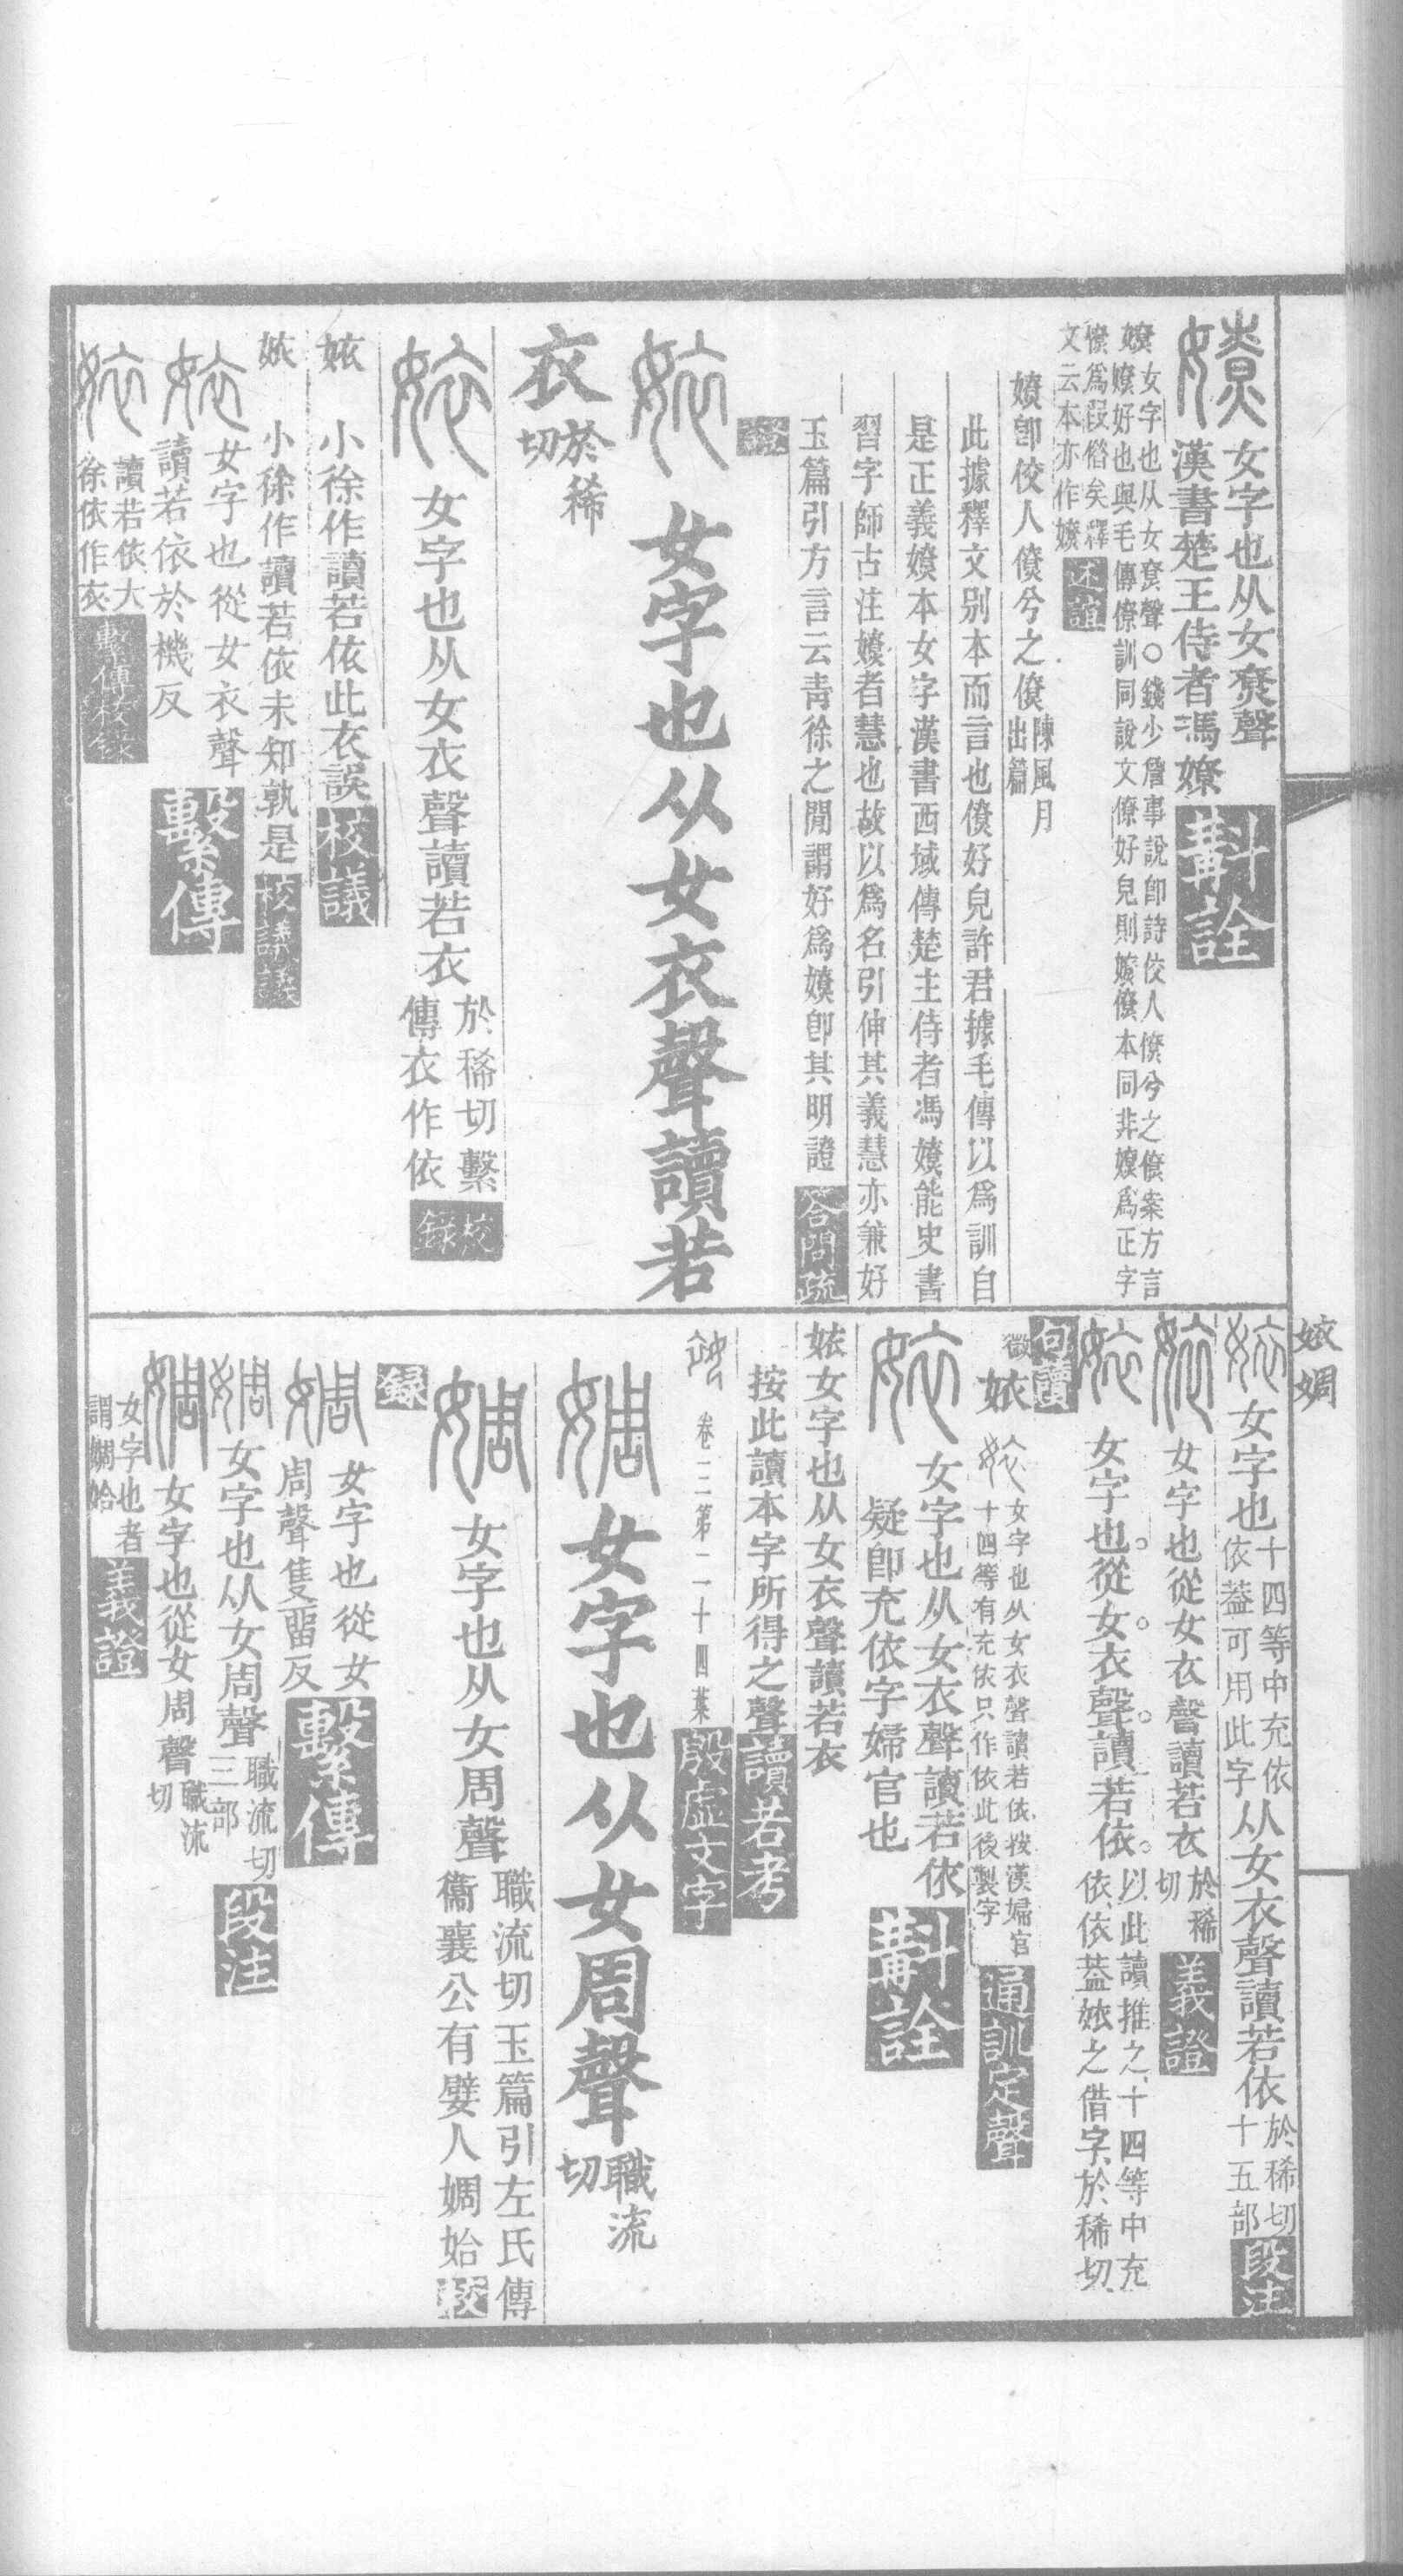 嫽女字也从女尞聲
漢書楚王侍者馮嫽斠詮
嫽女字也从女尞聲〇錢少詹事說卽詩佼人僚兮之僚案方言
嫽好也與毛傳僚訓同說文僚好皃則嫽僚本同非嫽爲正字
憭爲叚借矣釋
文云本亦作嫽述誼
嫽卽佼人僚兮之僚陳風月
出篇
此據釋文别本而言也僚好皃許君據毛傳以爲訓自
是正義嫽本女字漢書西域傳楚主侍者馮嫽能史書
習字師古注嫽者慧也故以爲名引伸其義慧亦兼好
玉篇引方言云青徐之閒謂好爲嫽卽其明證答問疏
證
㛄女字也从女衣聲讀若
衣於稀
切
㛄女字也从女衣聲讀若衣於稀切繫
傳衣作依校
錄
㛄 小徐作讀若依此衣誤校議
㛄 小徐作讀若依未知孰是校議議
㛄女字也從女衣聲
讀若依於機反繫傳
㛄讀若依大
徐依作衣繫傳校錄
㛄 婤
㛄女字也十四等中充依
依葢可用此字从女衣聲讀若依於稀切
十五部段注
㛄女字也從女衣聲讀若衣於稀
切義證
㛄女字也。從女。衣聲。讀若依。以此讀推之、十四等中充
依、依葢㛄之借字、於稀切、
句讀
徵㛄㛄女字也从女衣聲讀若依按漢婦官
十四等有充依只作依此後製字通訓定聲
㛄女字也从女衣聲讀若依
疑卽充依字婦官也斠詮
㛄女字也从女衣聲讀若衣
按此讀本字所得之聲讀若考
卷三第二十四葉殷虛文字
婤女字也从女周聲職流
切
婤女字也从女周聲職流切玉篇引左氏傳
衞襄公有嬖人婤姶校
録
婤女字也從女
周聲隻畱反繫傳
婤女字也从女周聲職流切
三部段注
婤女字也從女周聲職流
切
女字也者
謂婤姶義證